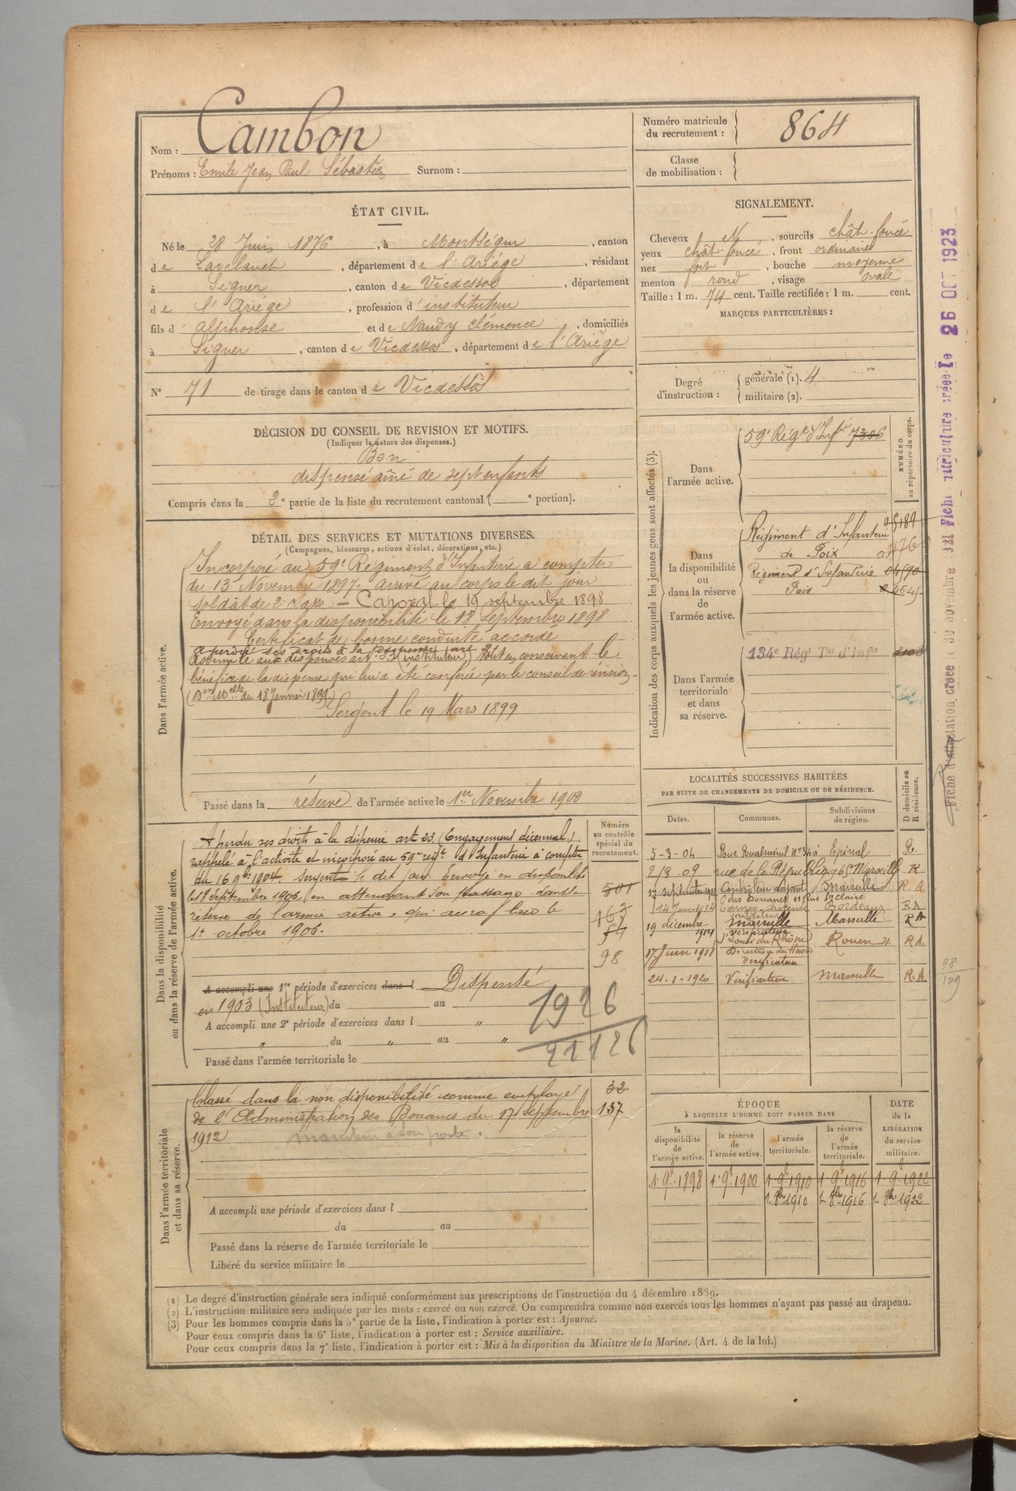 Nom : Cambon
Prénoms : Emile Jean Paul Sébastien Surnom :
Numéro matricule du recrutement : 864
Classe de mobilisation :
ÉTAT CIVIL.
Né le 28 Juin 1876, à Montségur, canton
de Lavelanet, département de l'Ariège, résidant
à Siguer, canton de Vicdessos, département
de l'Ariège, profession d'instituteur
fils d' alphonse et de Naudy Clémence, domiciliés
à Siguer, canton de Vicdessos, département de l'Ariège
N° 71 de tirage dans le canton de Vicdessos
SIGNALEMENT.
Cheveux N, sourcils chât. foncé
yeux chât. foncé, front ordinaire
nez fort, bouche moyenne
menton rond, visage ovale
Taille : 1 m. 74 cent. Taille rectifiée : 1 m. cent.
MARQUES PARTICULIÈRES :
Degré d'instruction : générale (1). 4
militaire (2).
DÉCISION DU CONSEIL DE REVISION ET MOTIFS.
(Indiquer la nature des dispenses.)
Bon
dispensé aîné de sept enfants
Compris dans la 2e partie de la liste du recrutement cantonal ( e portion).
DÉTAIL DES SERVICES ET MUTATIONS DIVERSES.
(Campagnes, blessures, actions d'éclat, décorations, etc.)
Dans l'armée active.
Incorporé au 59e Régiment d'Infanterie à compter
du 13 Novembre 1897. arrivé au corps le dit jour
soldat de 2e classe – Caporal le 19 septembre 1898
Envoyé dans la disponibilité le 18 Septembre 1898
Certificat de bonne conduite accordé
a perdu ses droits à la dispense
Assimilé aux dispensés art. 23 (instituteur) tout en conservant le
bénéfice de la dispense qui lui a été conférée par le conseil de révision
du 18 Janvier 1899)
Sergent le 19 Mars 1899
Passé dans la réserve de l'armée active le 1er Novembre 1900
Indication des corps auxquels les jeunes gens sont affectés (3).
NUMÉRO au répertoire du corps.
Dans l'armée active.
59e Régt d'Infie 7306
Dans la disponibilité ou dans la réserve de l'armée active.
Régiment d'Infanterie
de Foix
Régiment d'Infanterie
Foix
Dans l'armée territoriale et dans sa réserve.
134e Régt Tal d'Infie
LOCALITÉS SUCCESSIVES HABITÉES
PAR SUITE DE CHANGEMENTS DE DOMICILE OU DE RÉSIDENCE.
Dates. Communes. Subdivisions de région. D domicile ou R résidence.
5-3-04 Epinal
2/3 09 rue de la République 65 Marseille R
Marseille R.A
Bordeaux RA
19 décembre 1914 Marseille Marseille RA
17 Juin 1918 Rouen R.A
Vérificateur
24-1-1920 Vérificateur Marseille R.A
Dans la disponibilité ou dans la réserve de l'armée active.
Numéro au contrôle spécial du recrutement.
A perdu ses droits à la dispense art 23 (Engagement décennal)
rappelé à l'activité et incorporé au 59e régt d'Infanterie à compter
du 16 9bre 1904. Sergent le dit jour Envoyé en disponibilité
le 18 septembre 1905, en attendant son passage dans la
réserve de l'armée active, qui aura lieu le
1er octobre 1906.
98
A accompli une 1re période d'exercices dans l Dispensé
en 1903 (Instituteur) du au
A accompli une 2e période d'exercices dans l "
" du " au "
Passé dans l'armée territoriale le
1926
21126
Dans l'armée territoriale et dans sa réserve.
Classé dans la non disponibilité comme employé
de l'Administration des Douanes du 17 septembre
1912
32
157
A accompli une période d'exercices dans l
du au
Passé dans la réserve de l'armée territoriale le
Libéré du service militaire le
ÉPOQUE
À LAQUELLE L'HOMME DOIT PASSER DANS
la disponibilité de l'armée active. la réserve de l'armée active. l'armée territoriale. la réserve de l'armée territoriale. DATE de la LIBÉRATION du service militaire.
1 9bre 1898 1 9bre 1900 1 9bre 1910 1 9bre 1916 1 9bre 1922
1 8bre 1910 1 8bre 1916 1 8bre 1922
(1) Le degré d'instruction générale sera indiqué conformément aux prescriptions de l'instruction du 4 décembre 1889.
(2) L'instruction militaire sera indiquée par les mots : exercé ou non exercé. On comprendra comme non exercés tous les hommes n'ayant pas passé au drapeau.
(3) Pour les hommes compris dans la 5e partie de la liste, l'indication à porter est : Ajourné.
Pour ceux compris dans la 6e liste, l'indication à porter est : Service auxiliaire.
Pour ceux compris dans la 7e liste, l'indication à porter est : Mis à la disposition du Ministre de la Marine. (Art. 4 de la loi.)